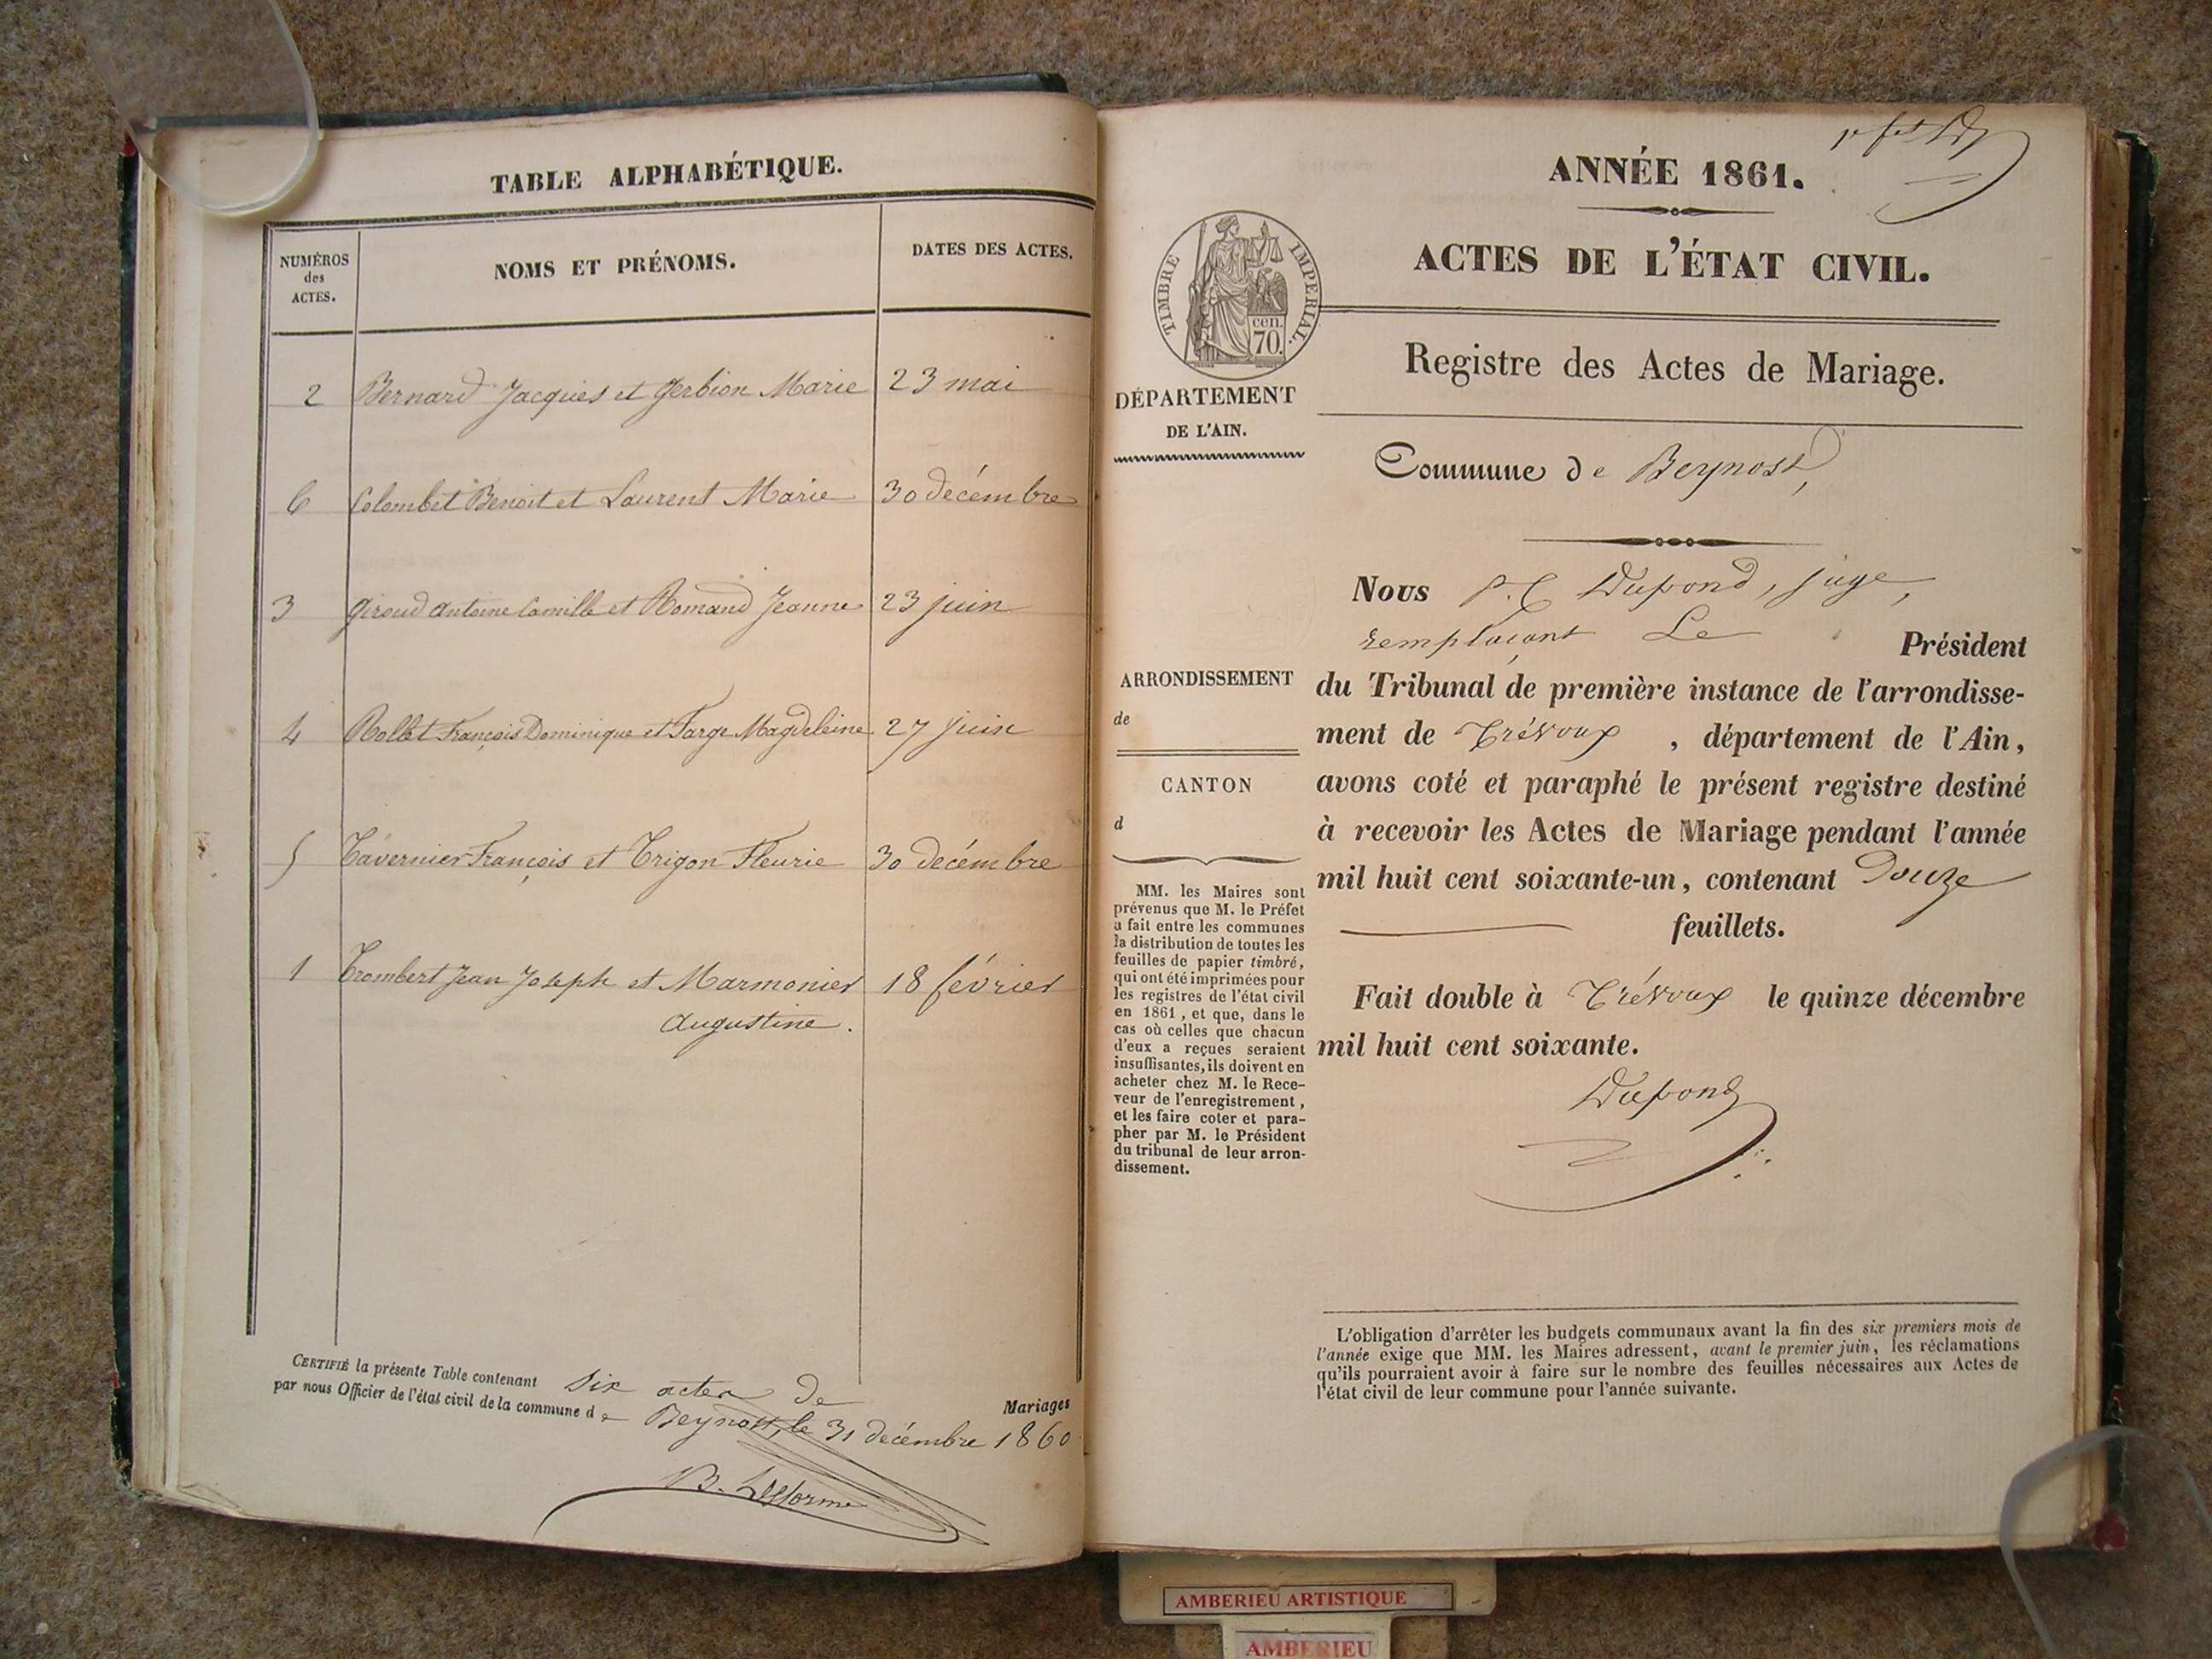 TABLE ALPHABÉTIQUE.
NUMÉROS
des
ACTES.
NOMS ET PRÉNOMS.
DATES DES ACTES.
2 Bernard Jacques et Gerbion Marie 23 mai
6 Colombet Benoit et Laurent Marie 30 décembre
3 Giroud Antoine Camille et Romand Jeanne 23 juin
4 Rollet François Dominique et Farge Magdeleine 27 juin
5 Tavernier François et Trigon Fleurie 30 décembre
1 Trombert Jean Joseph et Marmonier 18 février
Augustine.
CERTIFIÉ la présente Table contenant six actes de Mariages
par nous Officier de l'état civil de la commune de Beynost, le 31 décembre 1860
ANNÉE 1861.
ACTES DE L'ÉTAT CIVIL.
TIMBRE IMPERIAL.
cen.
70.
DÉPARTEMENT
DE L'AIN.
Registre des Actes de Mariage.
Commune de Beynost,
Nous Dupond, juge,
remplaçant Le Président
du Tribunal de première instance de l'arrondisse-
ment de Trévoux , département de l'Ain,
avons coté et paraphé le présent registre destiné
à recevoir les Actes de Mariage pendant l'année
mil huit cent soixante-un, contenant Douze
feuillets.
Fait double à Trévoux le quinze décembre
mil huit cent soixante.
Dupond
ARRONDISSEMENT
de
CANTON
d
MM. les Maires sont
prévenus que M. le Préfet
a fait entre les communes
la distribution de toutes les
feuilles de papier timbré,
qui ont été imprimées pour
les registres de l'état civil
en 1861, et que, dans le
cas où celles que chacun
d'eux a reçues seraient
insuffisantes, ils doivent en
acheter chez M. le Rece-
veur de l'enregistrement,
et les faire coter et para-
pher par M. le Président
du tribunal de leur arron-
dissement.
L'obligation d'arrêter les budgets communaux avant la fin des six premiers mois de
l'année exige que MM. les Maires adressent, avant le premier juin, les réclamations
qu'ils pourraient avoir à faire sur le nombre des feuilles nécessaires aux Actes de
l'état civil de leur commune pour l'année suivante.
AMBERIEU ARTISTIQUE
AMBERIEU